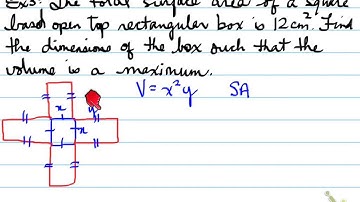 Ex3: The total surface area of a square
based open top rectangular box is 12 cm². Find
the dimensions of the box such that the
volume is a maximum.
V = x²y SA
x
x